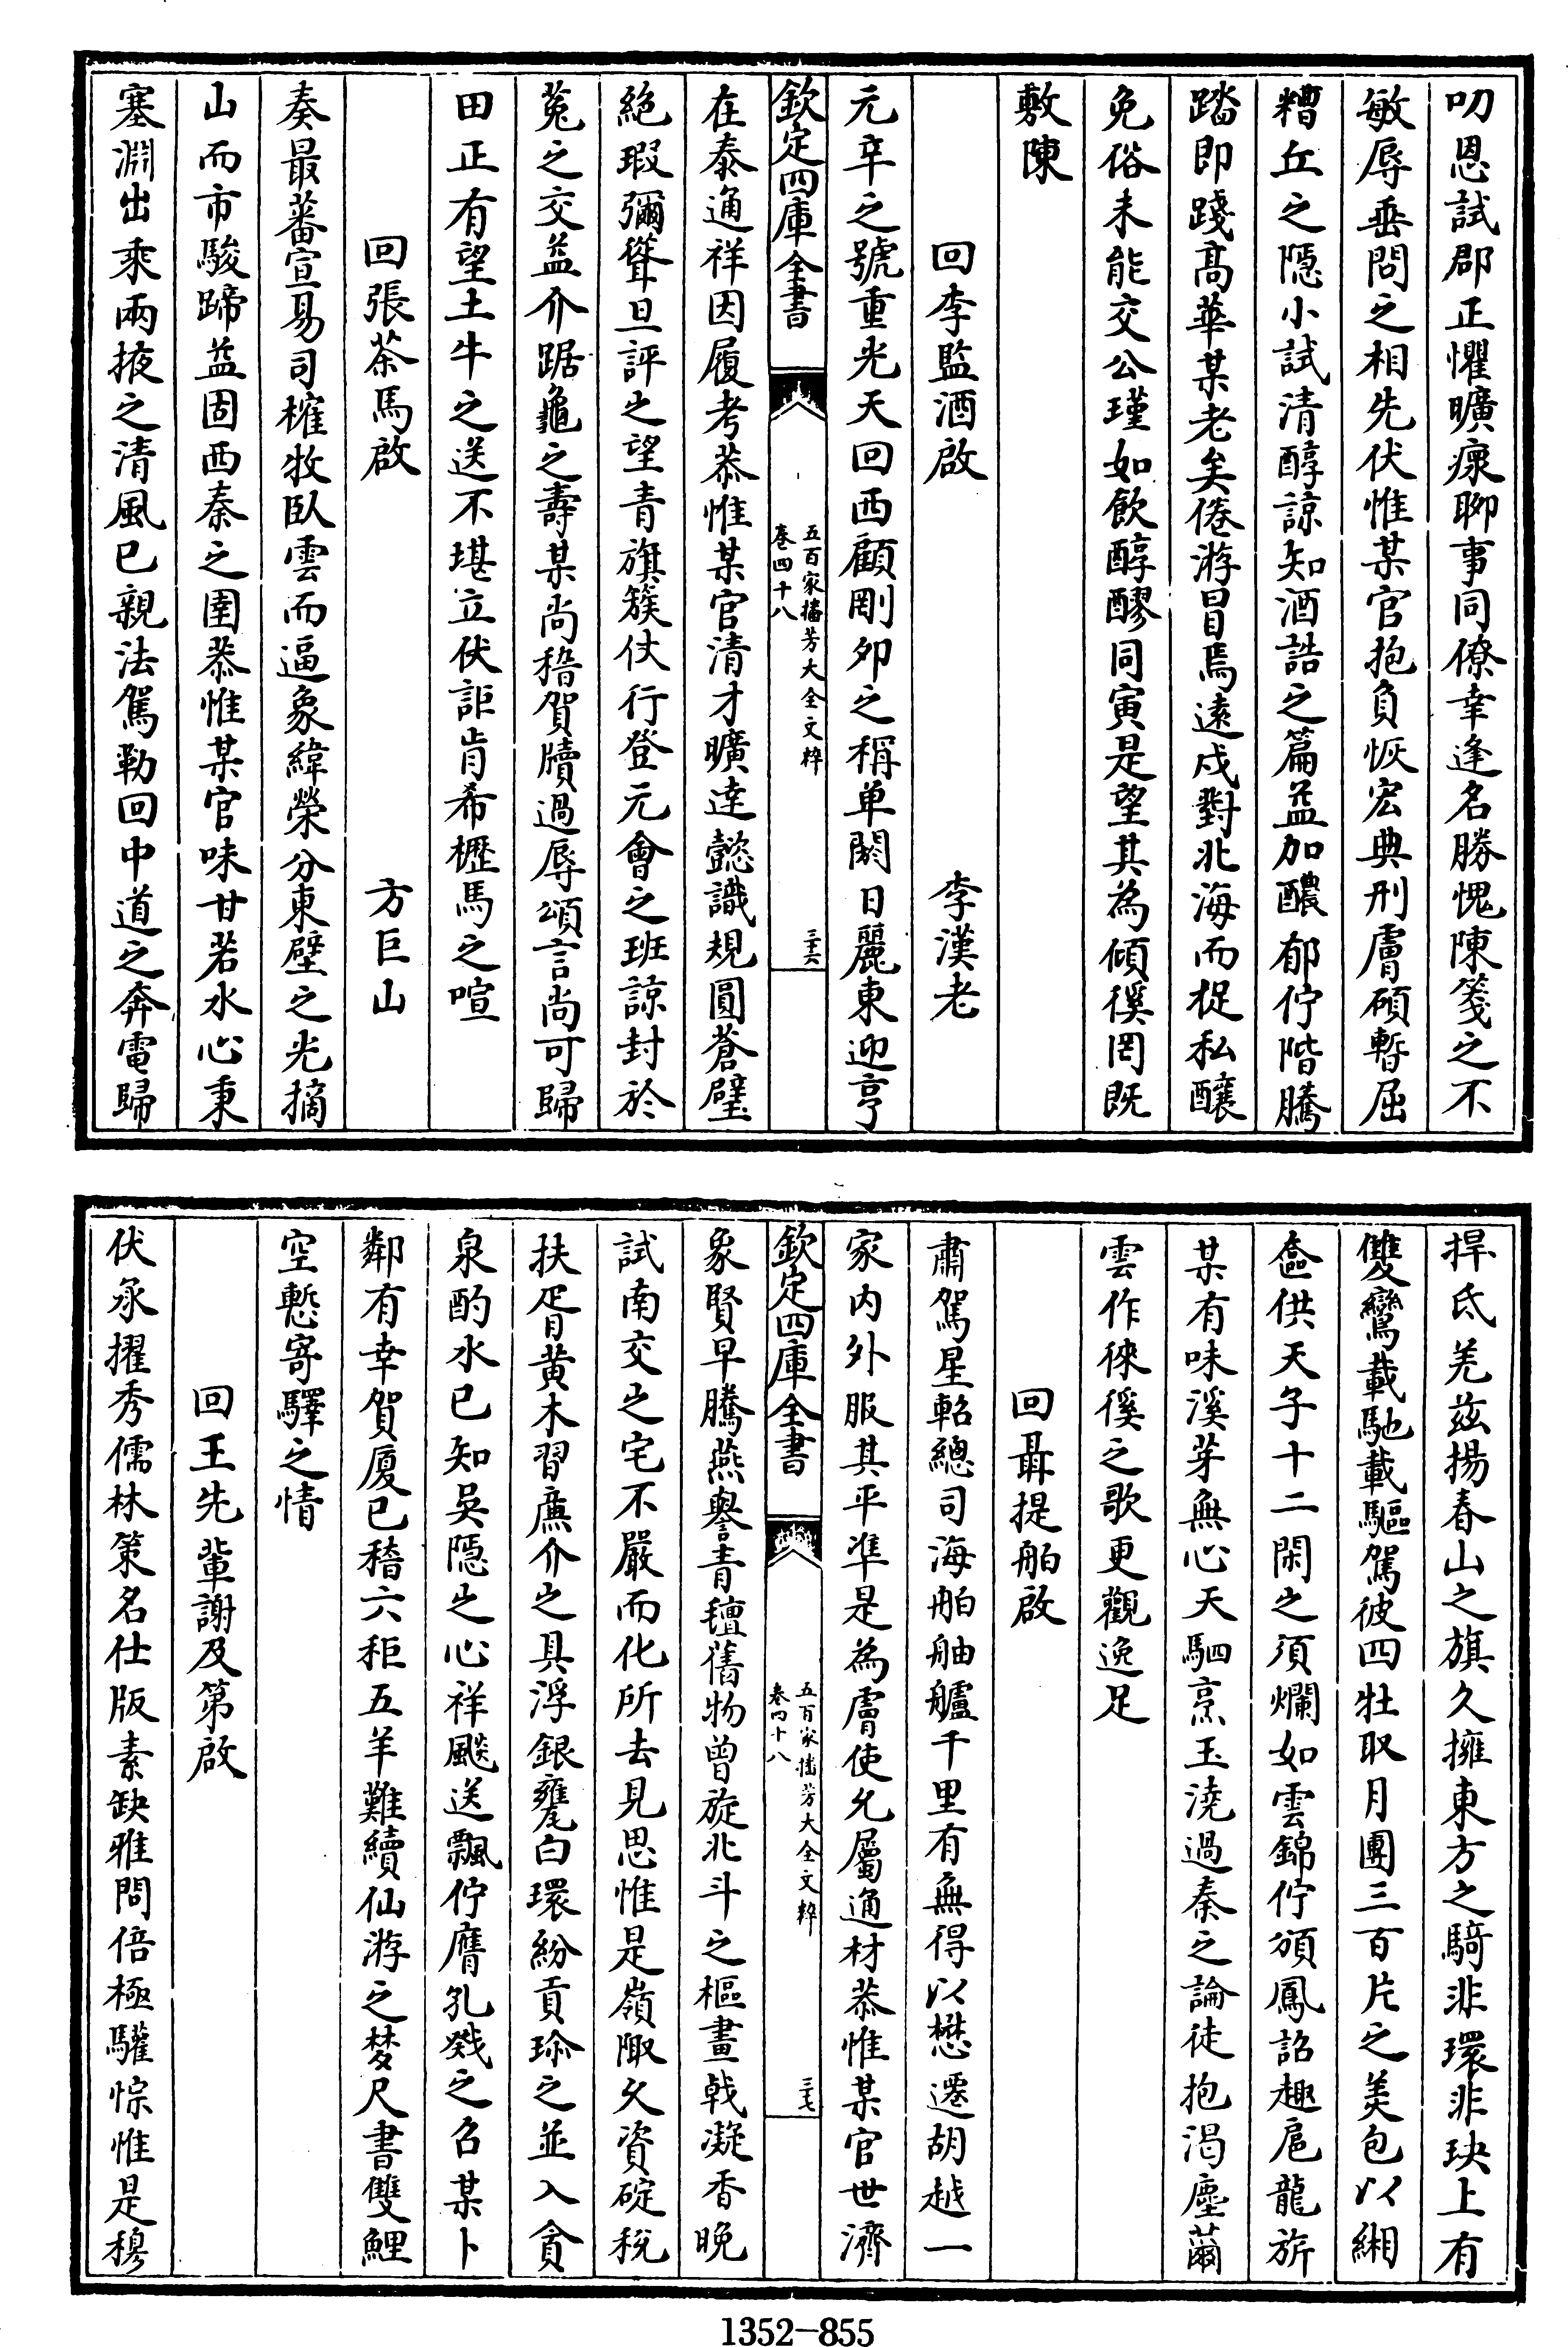 叨恩試郡正懼曠瘝聊事同僚幸逢名勝愧陳箋之不
敏辱垂問之相先伏惟某官抱負恢宏典刑膚碩暫屈
糟丘之隱小試清醇諒知酒誥之篇益加醲郁佇階騰
踏即踐髙華某老矣倦游冒焉逺戍對北海而捉私釀
免俗未能交公瑾如飲醇醪同寅是望其為傾徯罔既
敷陳
回李監酒啟　李漢老
元辛之號重光天回西顧剛夘之稱单閼日麗東迎亨
欽定四庫全書
五百家播芳大全文粹
卷四十八
三十六
在泰通祥因履考恭惟某官清才曠逹懿識規圓蒼璧
絶瑕彌聳旦評之望青旗簇仗行登元會之班諒封於
菟之交益介踞龜之壽某尚稽賀牘過辱頌言尚可歸
田正有望土牛之送不堪立伏詎肯希櫪馬之喧
回張茶馬啟　方巨山
奏最蕃宣易司榷牧臥雲而逼象緯榮分東壁之光摘
山而市駿蹄益固西秦之圉恭惟某官味甘若水心秉
塞淵出乘兩掖之清風已親法駕勒回中道之奔電歸
捍氐羌兹揚春山之旗久擁東方之騎非環非玦上有
雙鸞載馳載驅駕彼四牡取月團三百片之美包以緗
奩供天子十二閑之須爛如雲錦佇頒鳳詔趣扈龍旂
某有味溪芽無心天駟烹玉澆過秦之論徒抱渴塵薾
雲作徠徯之歌更觀逸足
回聶提舶啟
肅駕星軺總司海舶舳艫千里有無得以懋遷胡越一
家内外服其平凖是為膚使允屬通材恭惟某官世濟
欽定四庫全書
五百家播芳大全文粹
卷四十八
三十七
象賢早騰燕譽青氊舊物曾旋北斗之樞畫戟凝香晚
試南交之宅不嚴而化所去見思惟是嶺陬久資碇税
扶胥黄木習亷介之具浮銀甕白環紛貢琛之並入貪
泉酌水已知吳隠之心祥颷送飄佇膺孔戣之召某卜
鄰有幸賀厦已稽六秬五羊難續仙游之梦尺書雙鯉
空慙寄驛之情
回王先輩謝及第啟
伏承擢秀儒林策名仕版素缺雅問倍極驩悰惟是穆
1352—855